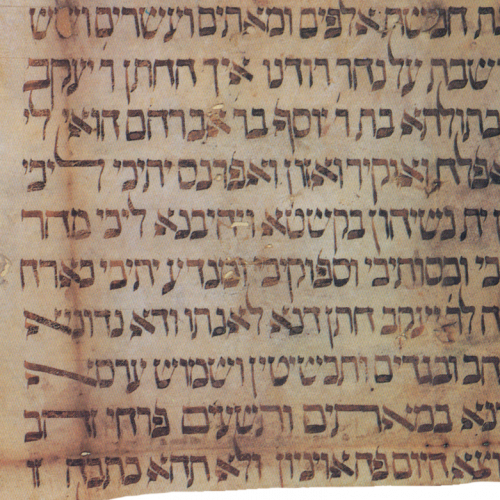 ת חמשת אלפים ומאתים ועשרים ושש
ושבת על נהר רודנו איך החתן ר יעקב
בתולתא בת ר יוסף בר אברהם הואי לי
אפלח ואוקיר ואזון ואפרנס יתיכי ליכי
ן ית נשיהון בקשטא ויהיבנא ליכי מהר
כי וכסותיכי וסיפוקיכי ומנדע יתיכי כארח
ה לר יעקב חתן דנא לאנתו ודא נדוניא
הב ובגדים ותכשיטין ושמוש ערסא
נא במאתים ותשעים פרחי זהב
וצא היום פה אויניון ולא תהא כתבה ז